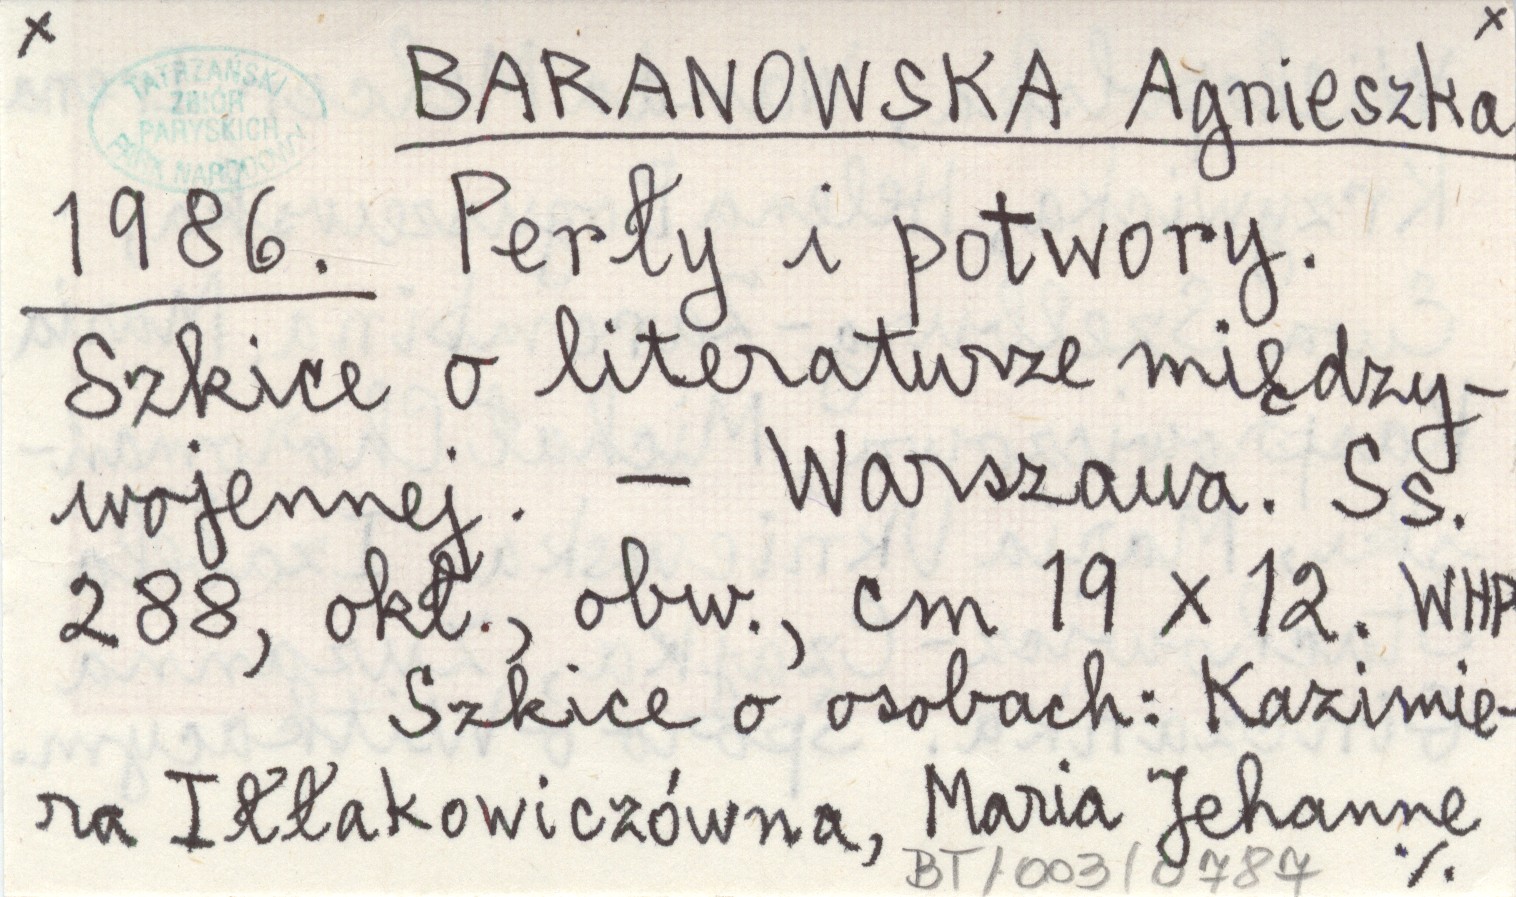 x x
TATRZAŃSKI
ZBIÓR
PARYSKICH
PARK NARODOWY
BARANOWSKA Agnieszka
1986. Perły i potwory.
Szkice o literaturze między-
wojennej. — Warszawa. Ss.
288, okł., obw., cm 19 x 12. WHP
Szkice o osobach: Kazimie-
ra Iłłakowiczówna, Maria Jehanne
BT/003/0787 ·/.